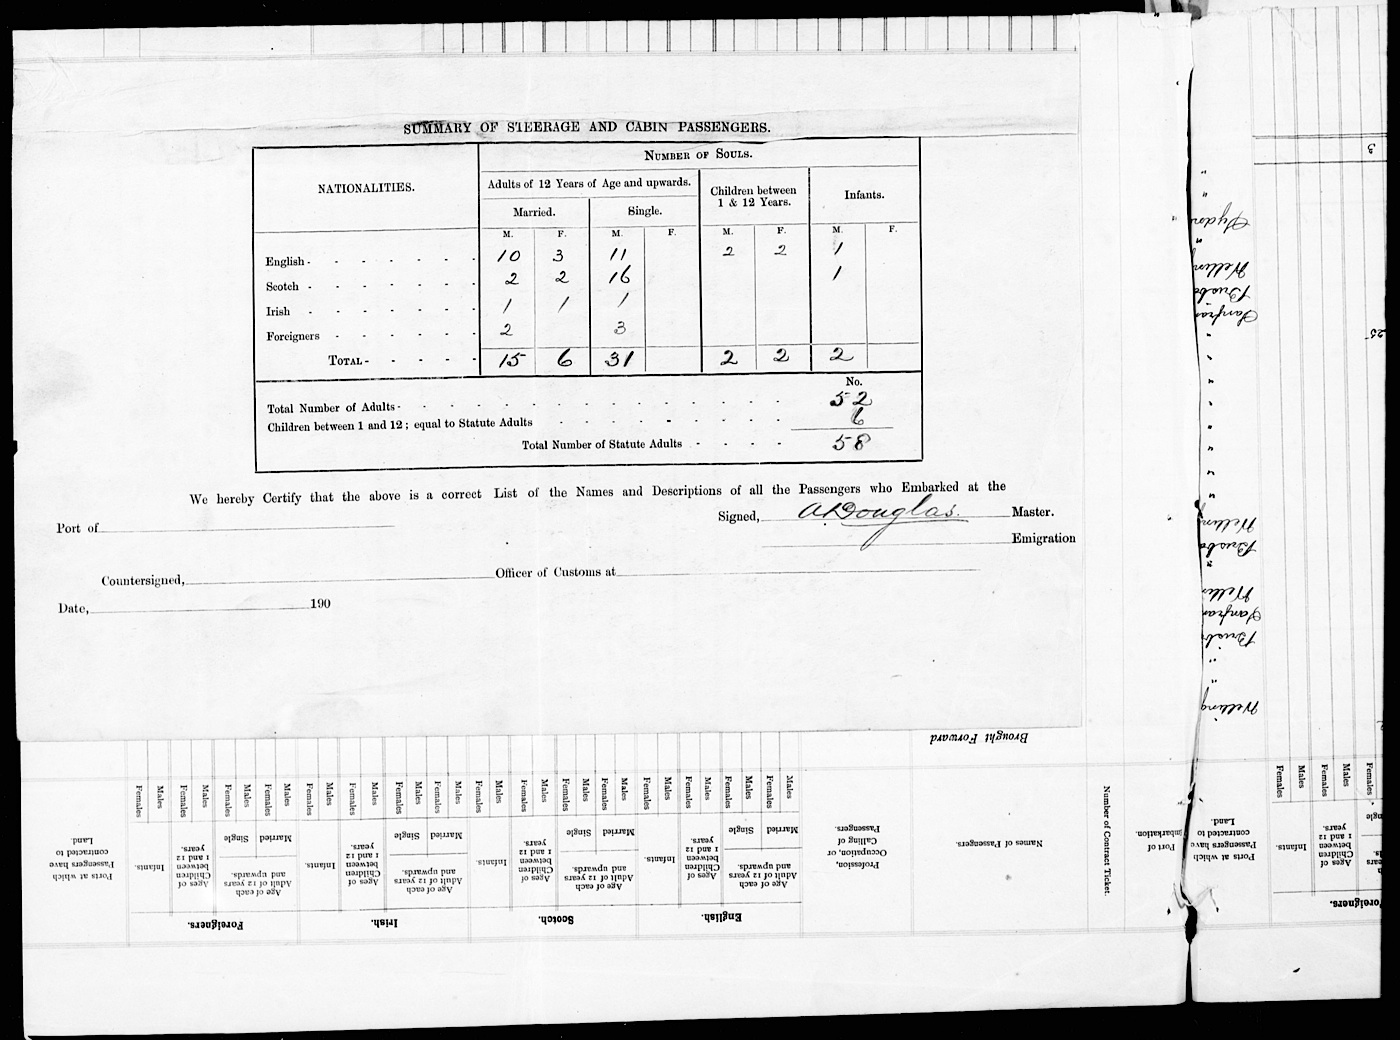 SUMMARY OF STEERAGE AND CABIN PASSENGERS.
NATIONALITIES.
NUMBER OF SOULS.
Adults of 12 Years of Age and upwards.
Children between 1 & 12 Years.
Infants.
Married. Single.
M. F. M. F. M. F. M. F.
English - 10 3 11 2 2 1
Scotch - 2 2 16 1
Irish - 1 1 1
Foreigners - 2 3
TOTAL - 15 6 31 2 2 2
No.
Total Number of Adults - 52
Children between 1 and 12; equal to Statute Adults 6
Total Number of Statute Adults - 58
We hereby Certify that the above is a correct List of the Names and Descriptions of all the Passengers who Embarked at the
Port of
Signed, A Douglas. Master.
Emigration
Countersigned, Officer of Customs at
Date, 190
Brought Forward
Number of Contract Ticket.
Port of Embarkation.
Names of Passengers.
Profession, Occupation, or Calling of Passengers.
English.
Adult of 12 years and upwards.
Age of each
Married Single
Ages of Children between 1 and 12 years.
Infants.
Males Females Males Females Males Females
Scotch.
Age of each Adult of 12 years and upwards.
Married Single
Ages of Children between 1 and 12 years.
Infants.
Males Females Males Females Males Females
Irish.
Age of each Adult of 12 years and upwards.
Married Single
Ages of Children between 1 and 12 years.
Infants.
Males Females Males Females Males Females
Foreigners.
Age of each Adult of 12 years and upwards.
Married Single
Ages of Children between 1 and 12 years.
Infants.
Males Females Males Females Males Females
Ports at which Passengers have contracted to Land.
Ports at which Passengers have contracted to Land.
Infants.
Children between 1 and 12 years.
Females Males Females Males Females
3
25